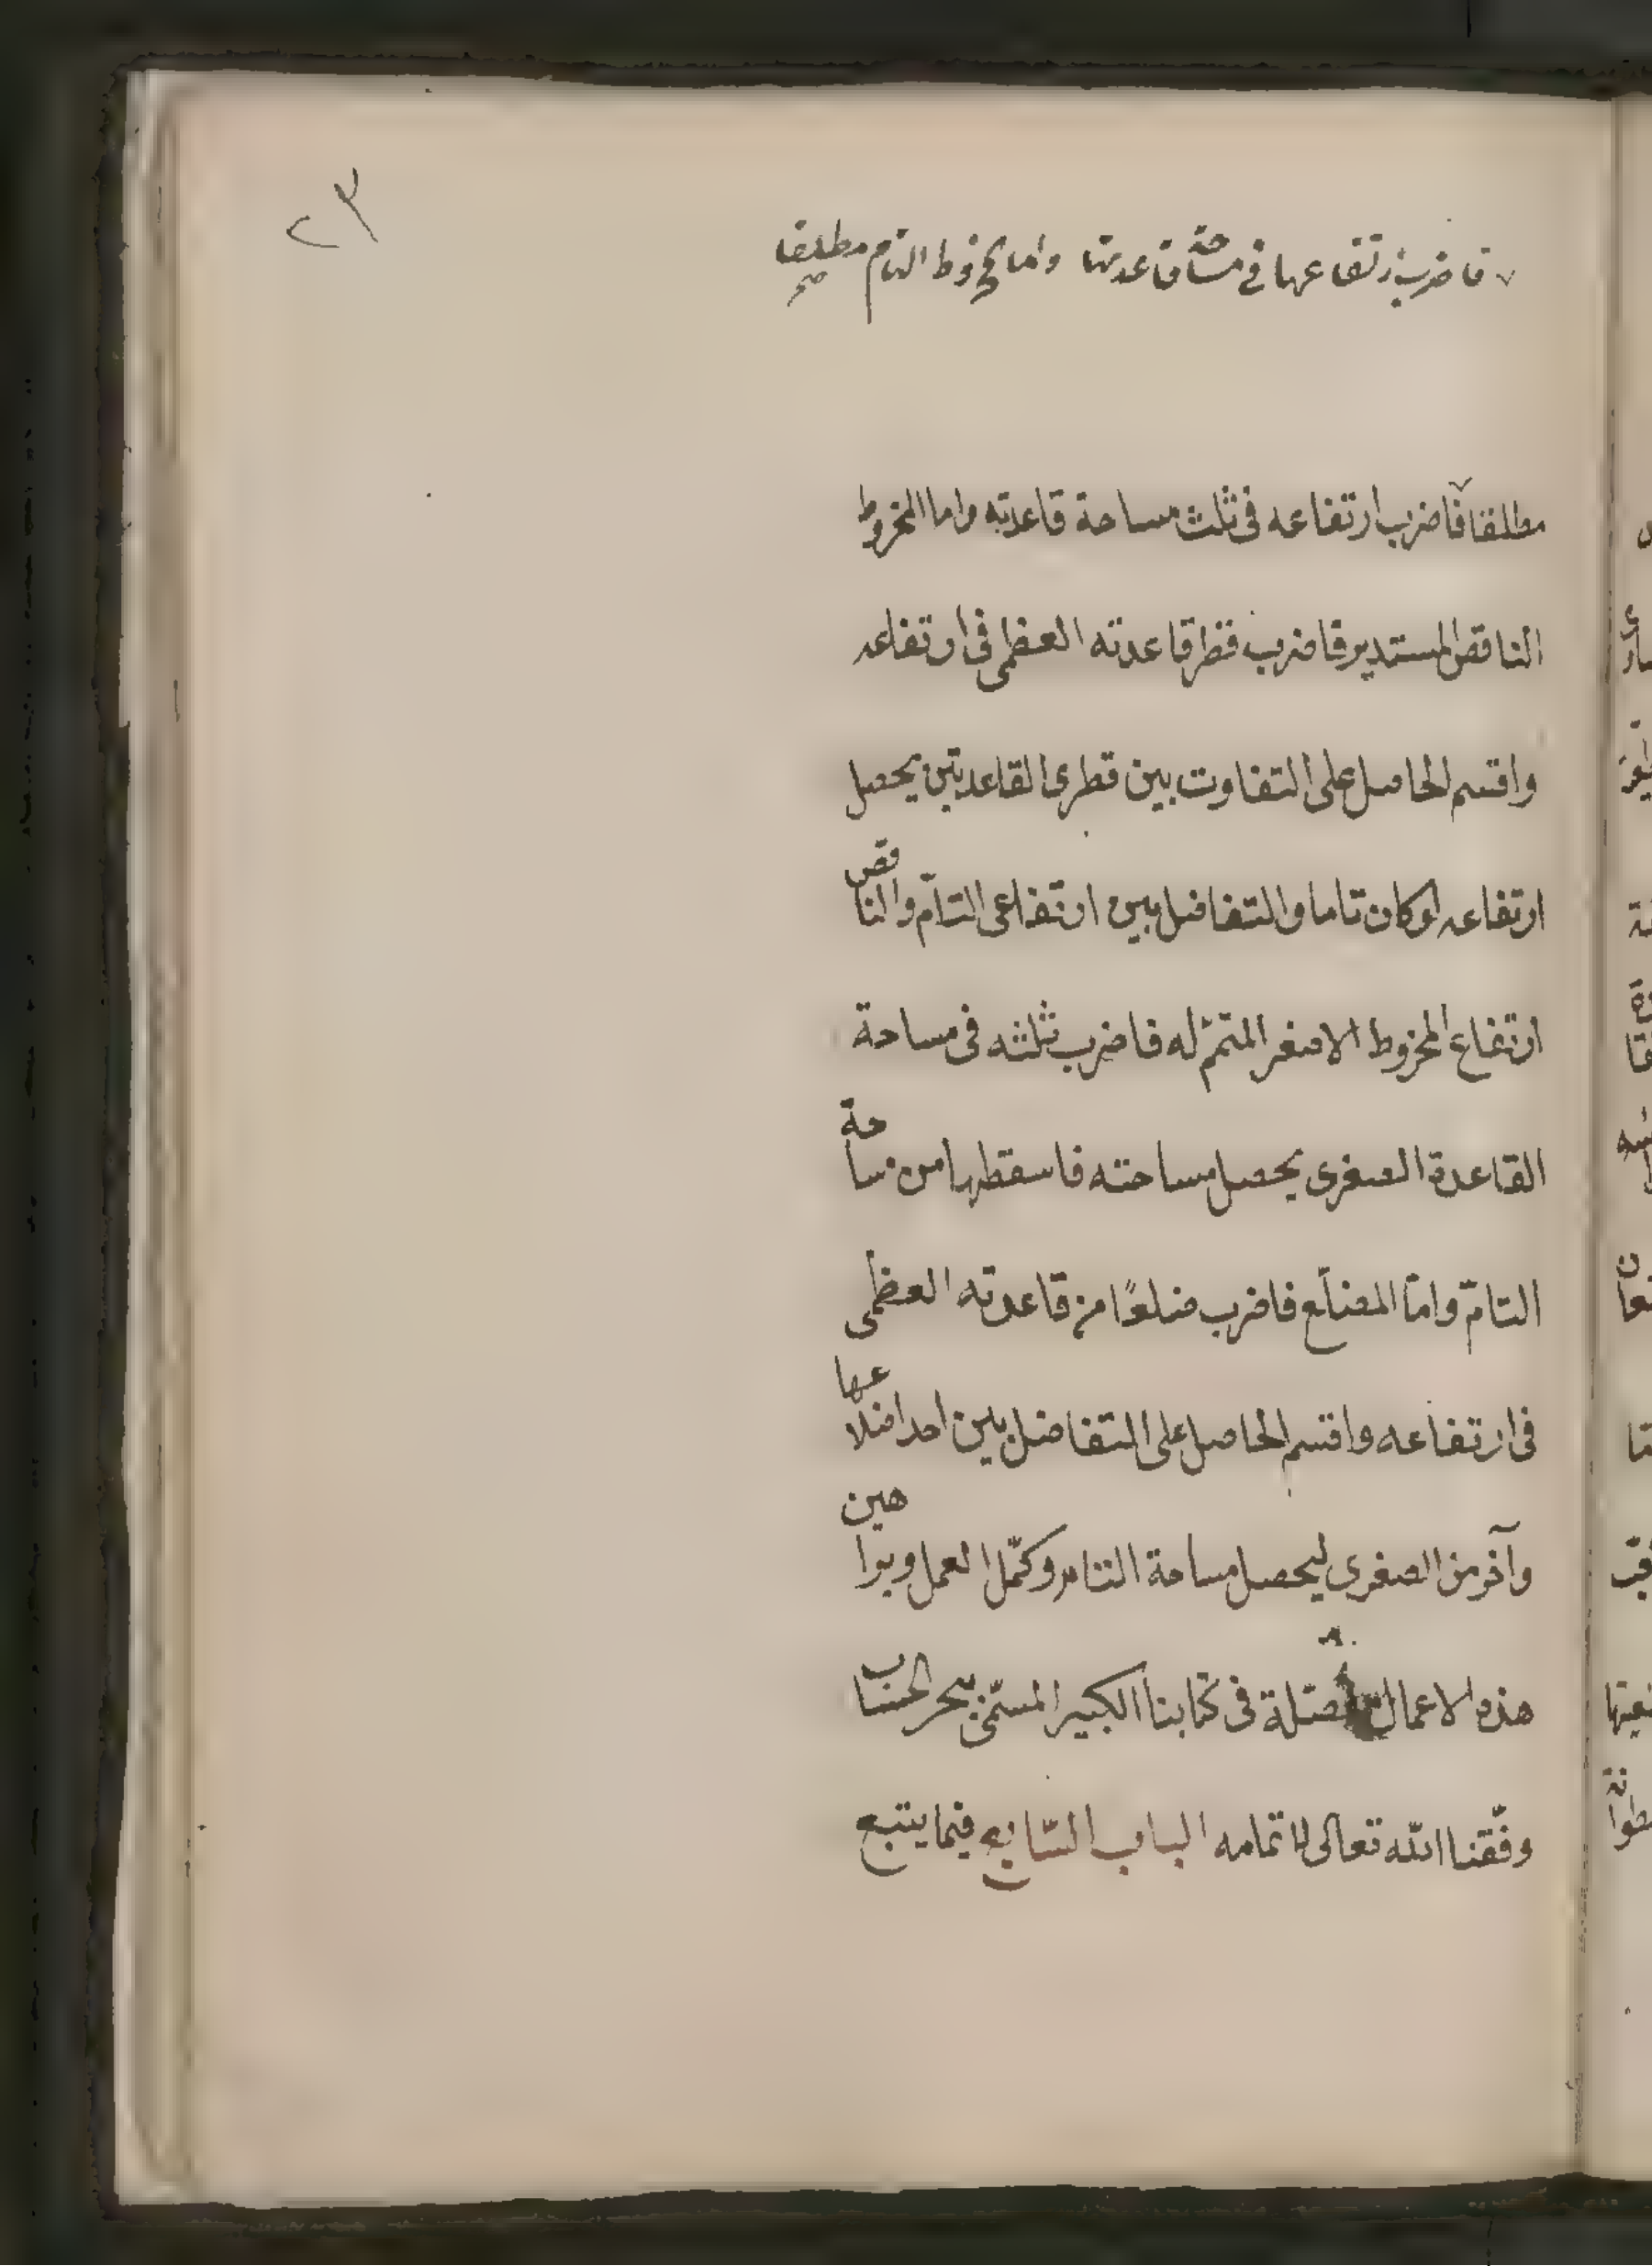 ٢٣
فاضرب ارتفاعها في مساحة قاعدتها واما المخروط التام مطلقا صح
مطلقا فاضرب ارتفاعه فى ثلث مساحة قاعدته واما المخروط
الناقص المستدير فاضرب قطر قاعدته العظمى فى ارتفاعه
واقسم الحاصل على التفاوت بين قطرى القاعدتين يحصل
ارتفاعه لو كان تاما والتفاضل بين ارتفاعى التامّ والناقص
ارتفاع المخروط الاصغر المتمّم له فاضرب ثلثه فى مساحة
القاعدة الصغرى يحصل مساحته فاسقطها من مساحة
التامّ وامّا المضلّع فاضرب ضلعًا من قاعدته العظمى
فى ارتفاعه واقسم الحاصل على التفاضل بين احد اضلاعها
وآخر من الصغرى ليحصل مساحة التام وكمّل العمل وبراهين
هذه الاعمال مفصّلة فى كتابنا الكبير المسمّى ببحر الحساب
وفّقنا اللّه تعالى لاتمامه الباب السّابع فيما يتبع